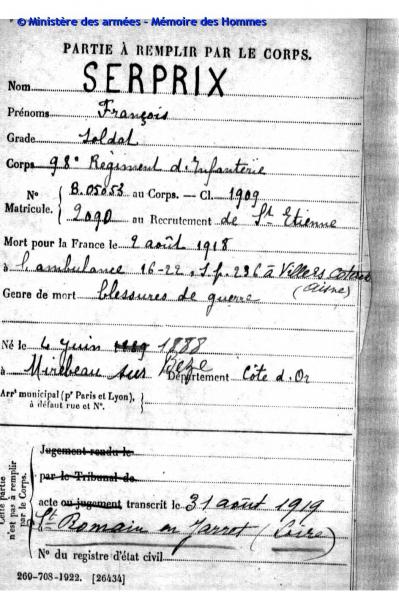 © Ministère des armées - Mémoire des Hommes
PARTIE À REMPLIR PAR LE CORPS.
Nom SERPRIX
Prénoms François
Grade Soldat
Corps 98e Régiment d'Infanterie
N° Matricule. { B.05053 au Corps. — Cl. 1909
2090 au Recrutement de St Etienne
Mort pour la France le 2 août 1918
à l'ambulance 16-22, S.p. 236 à Villers
(Aisne)
Genre de mort blessures de guerre
Né le 4 juin 1888
à Mirebeau sur Bèze Département Côte d'Or
Arrt municipal (pr Paris et Lyon), à défaut rue et N°. }
Cette partie n'est pas à remplir par le Corps.
Jugement rendu le
par le Tribunal de
acte ou jugement transcrit le 31 août 1919
à St Romain en Jarrot (Loire)
N° du registre d'état civil
269-708-1922. [26434]